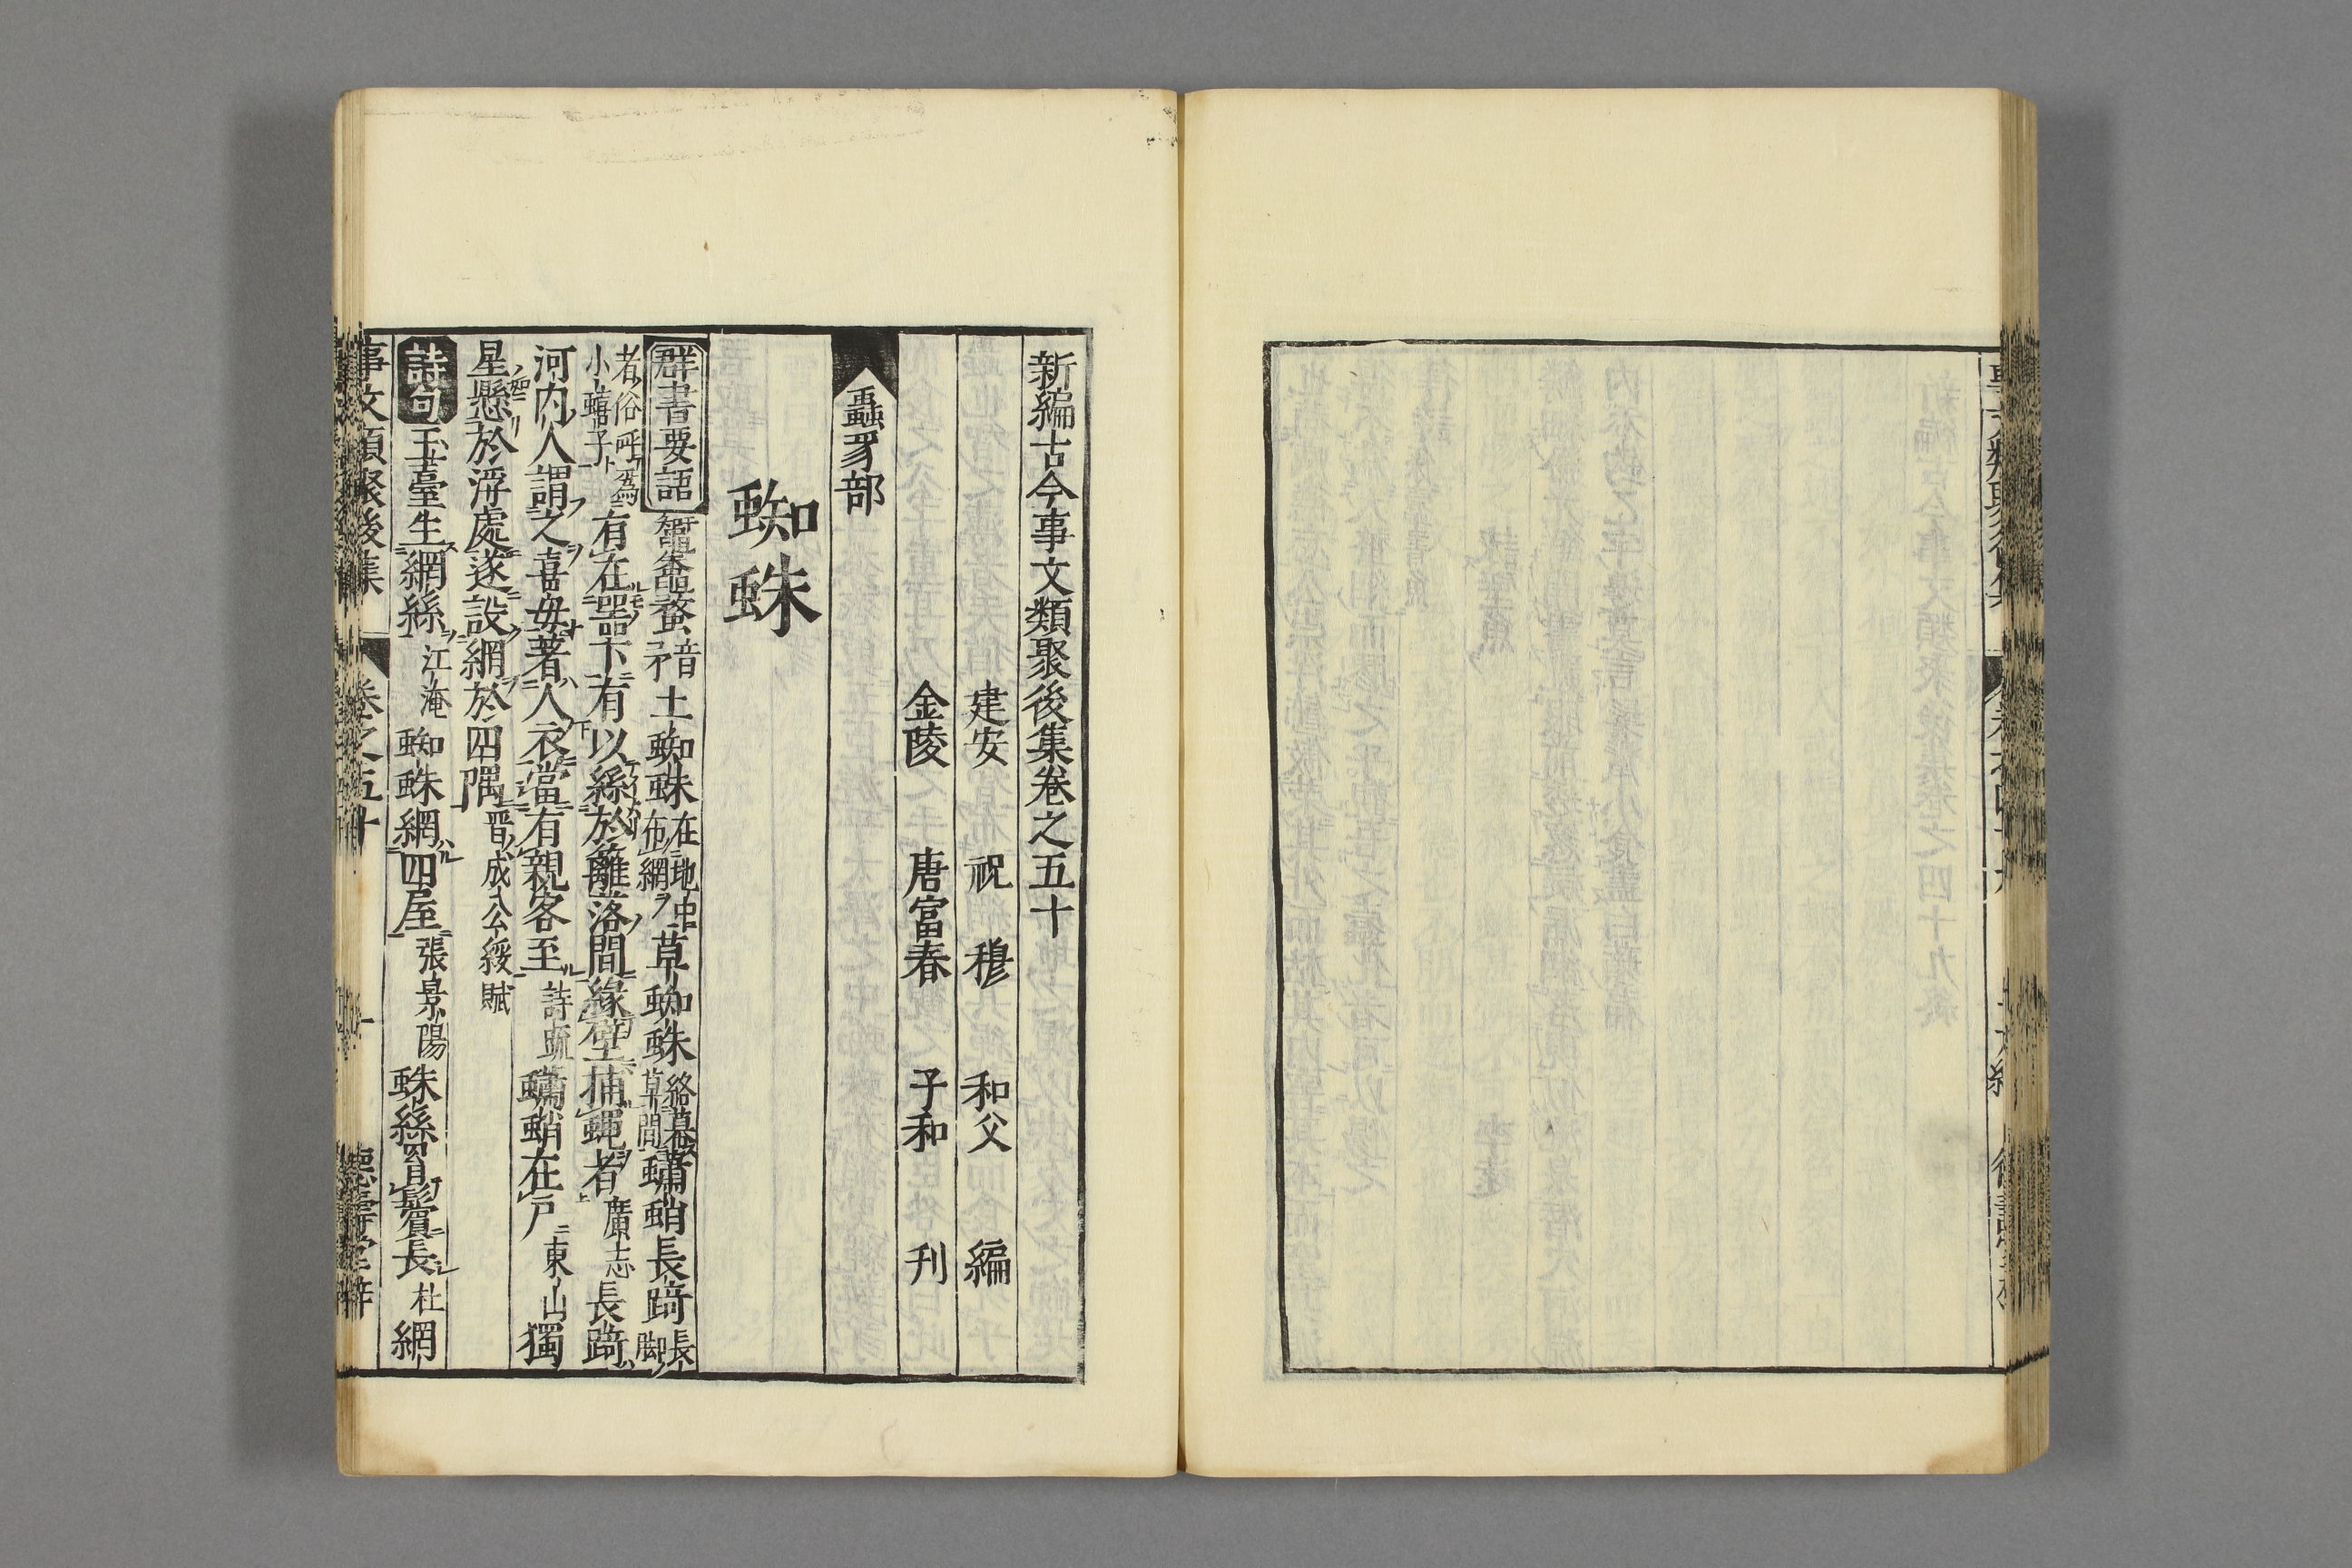 新編古今事文類聚後集卷之五十
建安 祝 穆 和父 編
金陵 唐富春 子和 刊
蟲豸部
蜘蛛
群書要語 鼅鼄蝥音矛土蜘蛛在地中布網草蜘蛛絡幕草間蠨蛸長踦長脚
者俗呼為小蟢子有在器下有以絲於籬落間緣壁捕蠅者廣志長踦
河内人謂之喜母著人衣當有親客至詩疏蠨蛸在戶東山獨
星懸於浮處遂設網於四隅晋成公綏賦
詩句 玉臺生網絲江淹蜘蛛網四屋張景陽蛛絲罥鬢長杜網
事文類聚後集 卷之五十 一 德壽堂梓